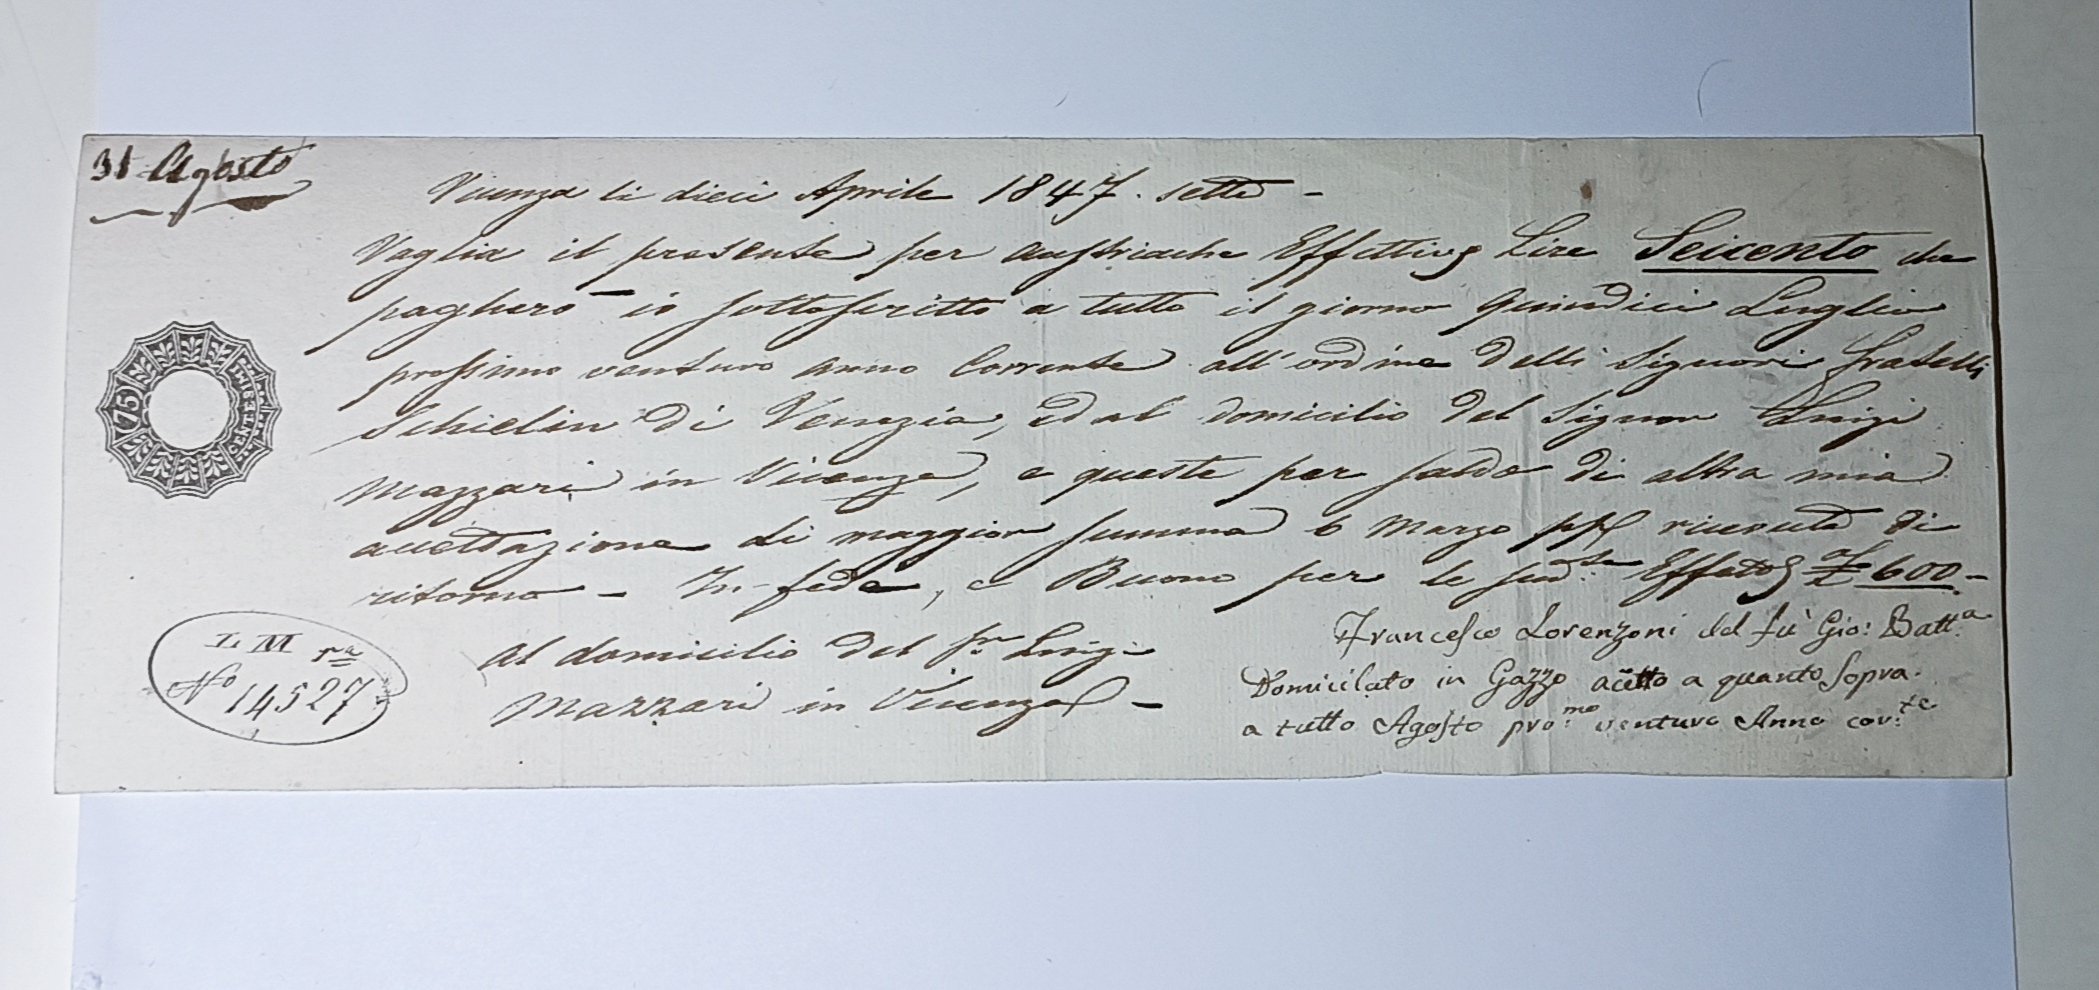 31 Agosto
Vicenza li dieci Aprile 1847. sette -
Vaglia il presente per austriache Effettive Lire Seicento che
pagherò io sottoscritto a tutto il giorno quindici Luglio
prossimo venturo anno Corrente all'ordine delli Signori Fratelli
Schielin di Venezia, ed al domicilio del Signor Luigi
Mazzari in Vicenza, e queste per saldo di altra mia
accettazione di maggior summa 6 Marzo ppo ricevuta di
ritorno - In fede, e Buono per le sudte Effete £ 600 -
Francesco Lorenzoni del fù Gio: Batta
Al domicilio del Sr Luigi
Domicilato in Gazzo acetto a quanto Sopra.
Mazzari in Vicenza -
a tutto Agosto promo venturo Anno corte
75
L M
No 14527